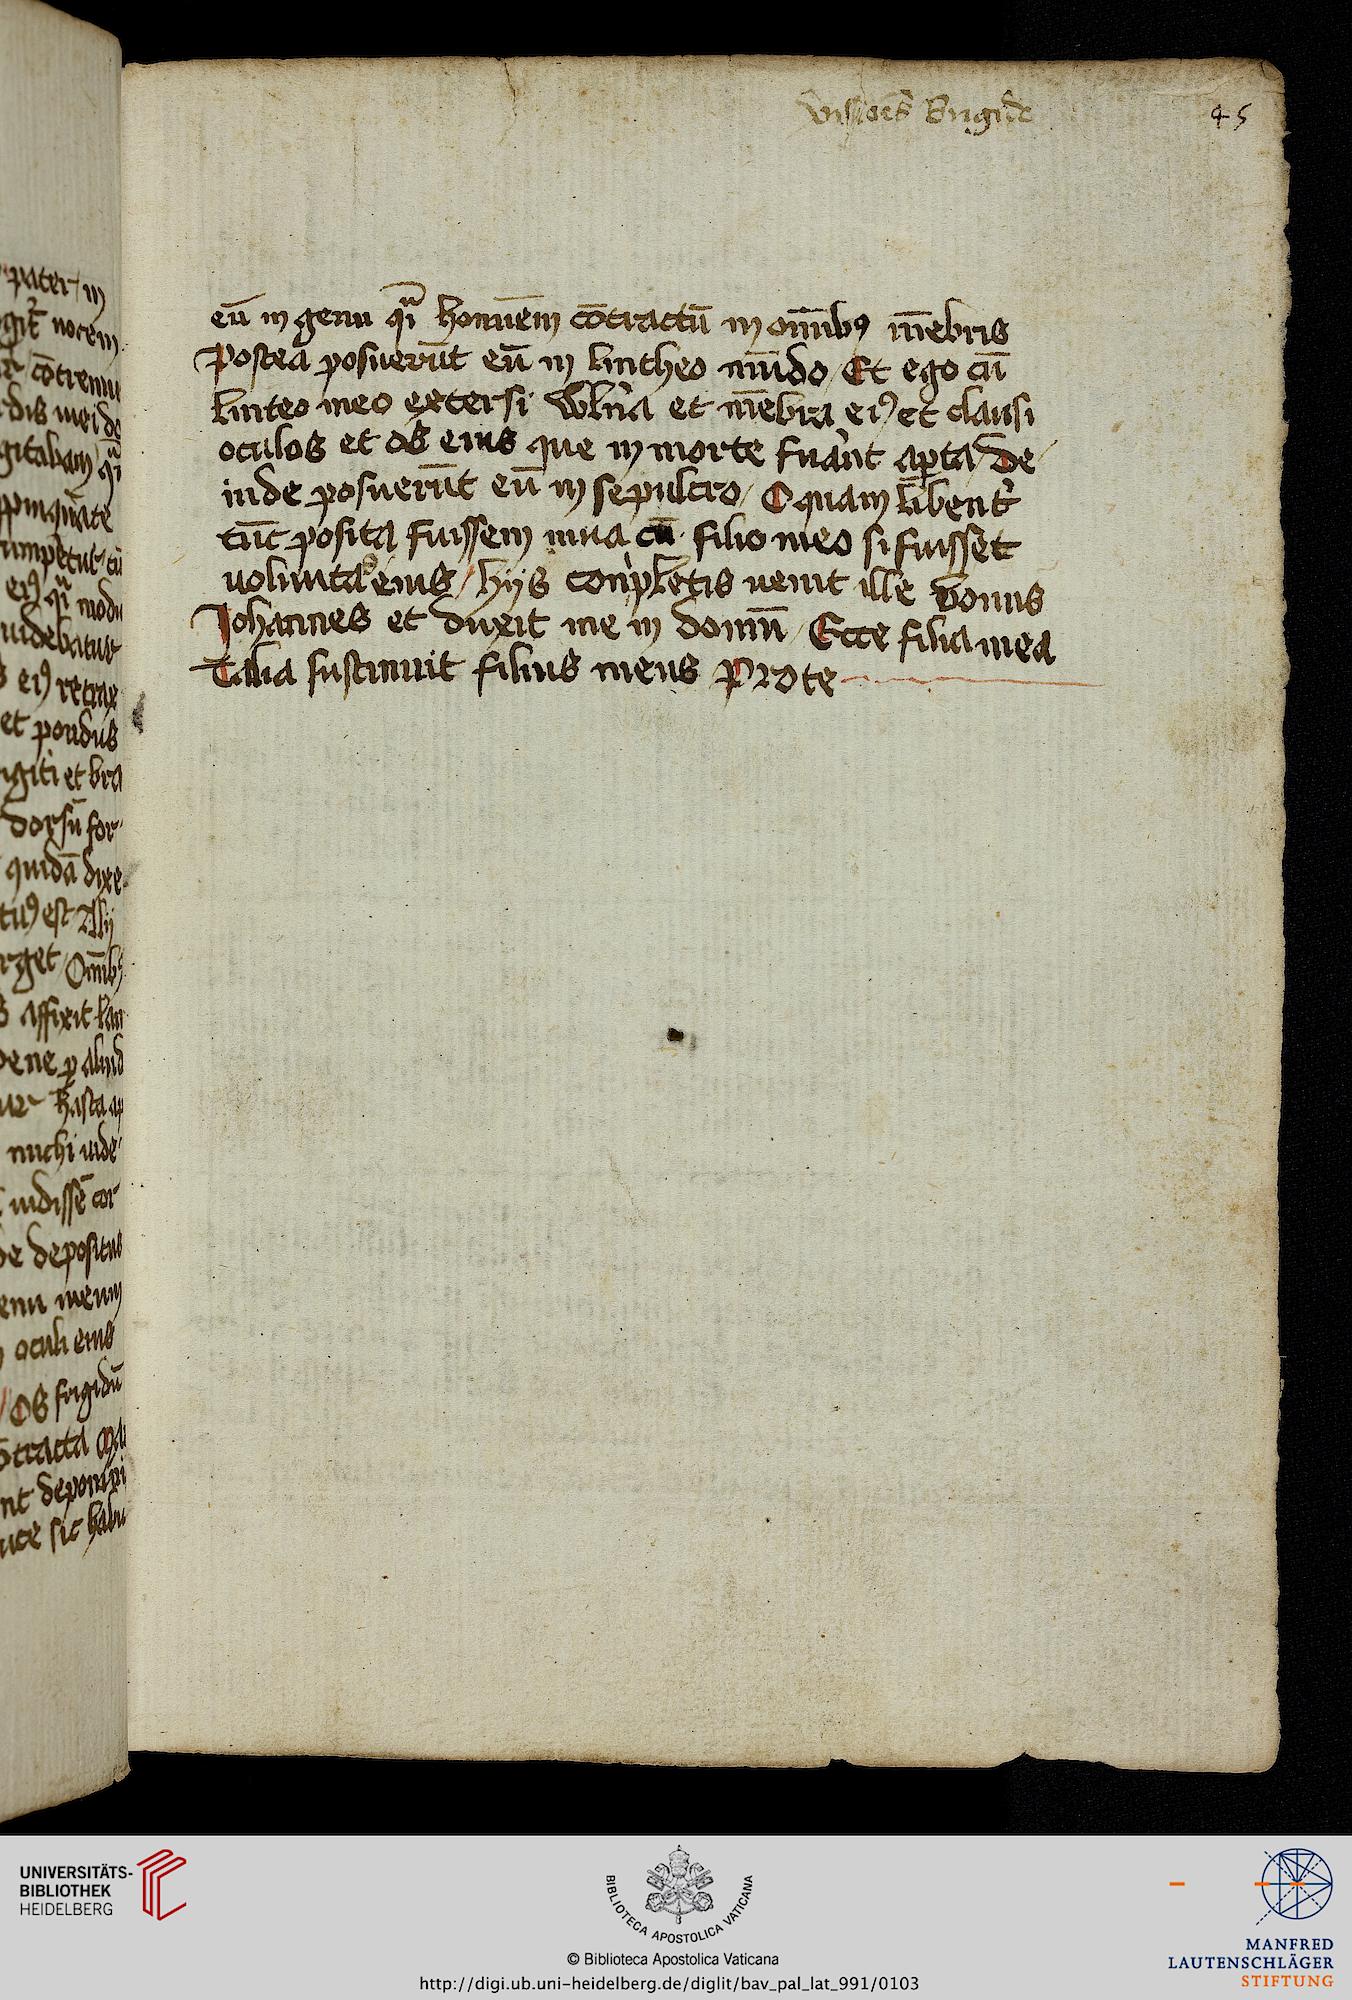 visiões Brigide
45
eū in genu qͣi homīem cōtractū in om̄ībꝰ mēbris
Postea posuerūt eū in lintheo mūdo / Et ego cū
linteo meo extersi wlńa et mēbra eiꝰ et clausi
oculos et os eius que in morte fuāt apta / De /
inde posuerūt eū in sepulcro / O quam libent̛
tūc posita fuissem viua cū filio meo si fuisset
volūtas eius / hijs conpletis venit ille bonus
Johannes et duxit me in domū / Ecce filia mea
Talia sustinuit filius meus Pro te
pater / in
vocem
cōtremu
dis mei do
gitabam qͣi
ppinqūate
eiꝰ qͣi modū
videbatur
eiꝰ retrax
et pondus
et bra
dorsū for
quidā dixe
tuꝰ est Alij
Om̄ibꝰ
affixit lan
bene ꝑ aliud
hasta ap
michi vide
vidissē cor
depositus
genu meum
oculi eius
Os frigidū
sic habu
UNIVERSITÄTS-
BIBLIOTHEK
HEIDELBERG
BIBLIOTECA APOSTOLICA VATICANA
© Biblioteca Apostolica Vaticana
http://digi.ub.uni-heidelberg.de/diglit/bav_pal_lat_991/0103
MANFRED
LAUTENSCHLÄGER
STIFTUNG